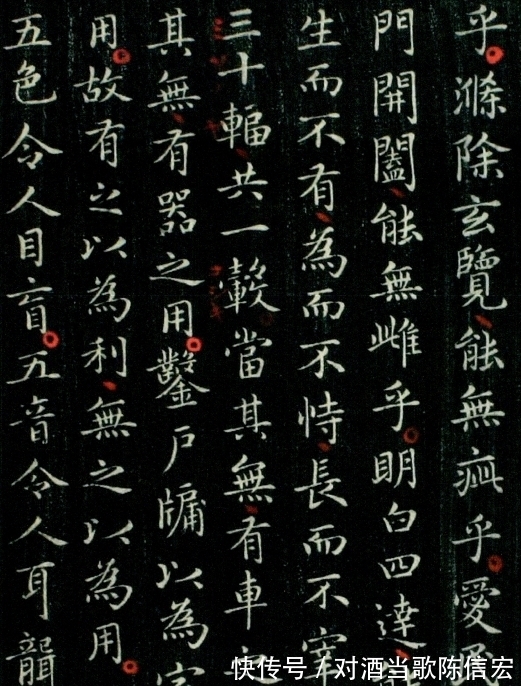 乎滌除玄覽能無疵乎愛
門開闔能無雌乎明白四達
生而不有為而不恃長而不宰
三十輻共一轂當其無有車
其無有器之用鑿戶牖以為
用故有之以為利無之以為用
五色令人目盲五音令人耳聾
快传号 / 对酒当歌陈信宏